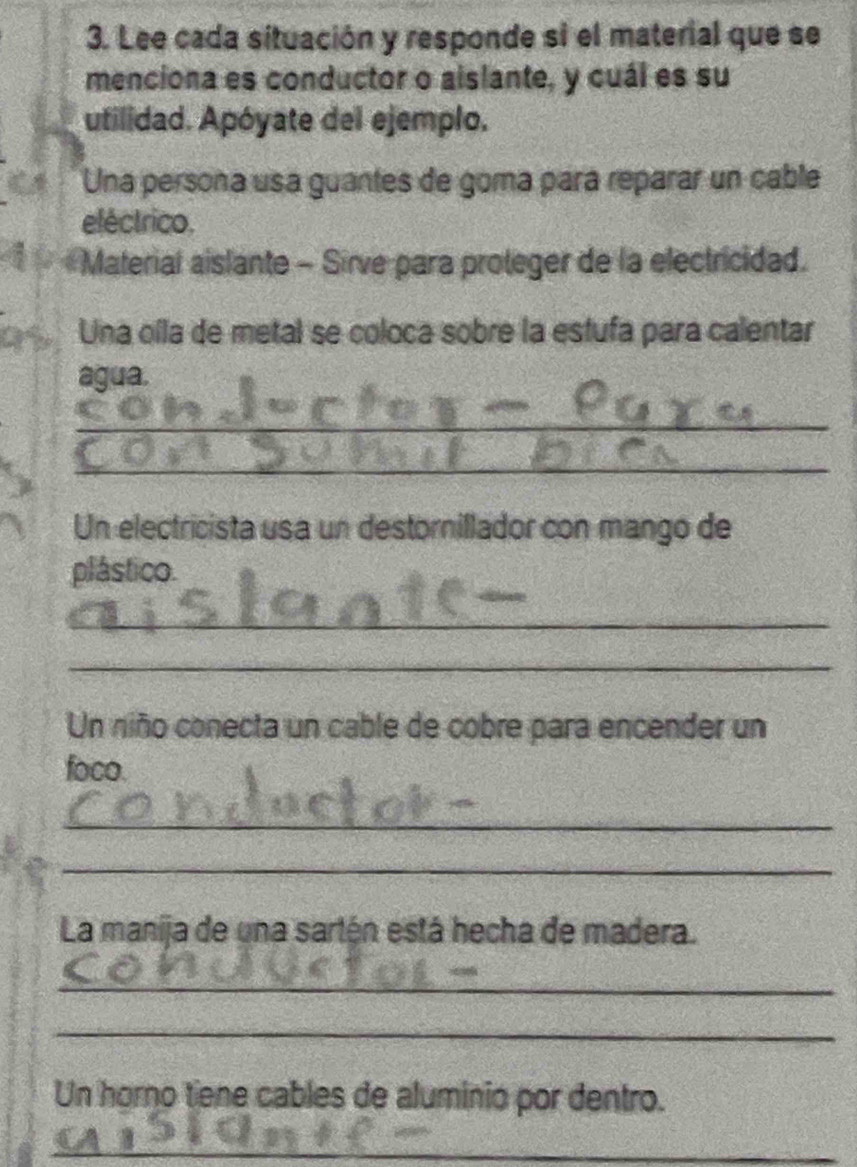 3. Lee cada situación y responde si el material que se
menciona es conductor o aislante, y cuál es su
utilidad. Apóyate del ejemplo.
Una persona usa guantes de goma para reparar un cable
eléctrico.
Material aislante - Sirve para proteger de la electricidad.
Una olla de metal se coloca sobre la estufa para calentar
agua.
conductor - Para
con sumir bien
Un electricista usa un destornillador con mango de
plástico.
aislante-
Un niño conecta un cable de cobre para encender un
foco.
conductor-
La manija de una sartén está hecha de madera.
conductor-
Un horno tiene cables de aluminio por dentro.
aislante-